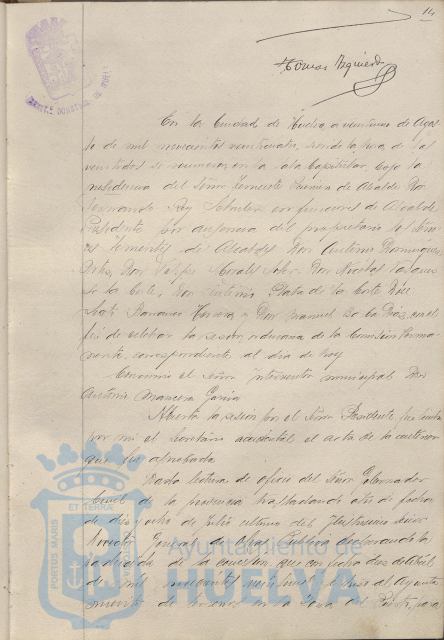 14
Tomas Izquierdo
En la Ciudad de Huelva, a veintiuno de Agos
to de mil novecientos veinticuatro, siendo la hora de las
veintidos se reunieron en la Sala Capitular, bajo la
presidencia del Señor Teniente Primero de Alcalde Don
Fernando Rey en funciones de Alcalde
Presidente por ausencia del propietario los Seño
res Tenientes de Alcaldes Don Antonio Dominguez
Don Felipe Morales Don Nicolas Vazquez
de la Corte, Don Antonio Plata de la Corte, Don
José Hernandez y Don Manuel de la con el
fin de celebrar la sesion ordinaria de la Comision Perma-
nente, correspondiente al dia de hoy
Concurrio el Señor Interventor municipal Don
Antonio Mancera
Abierta la sesion por el Señor Presidente, fue leida
por mi el Secretario accidental el acta de la anterior
que fue aprobada.
Dada lectura de oficio del Señor Gobernador
Civil de la provincia trasladando otro de fecha
de diez y ocho de Julio ultimo del Ilustrisimo Señor
Director General de Obras Publicas declarando la
caducidad de la concesion que con fecha dos de Abril
de mil novecientos se hizo al Ayunta
miento de en la Zona del Puerto para
PORTUS MARIS
ET TERRAE
Ayuntamiento de
HUELVA